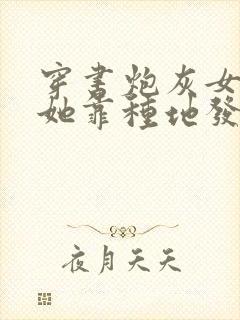 穿書炮灰女
她靠種地發
夜月天天